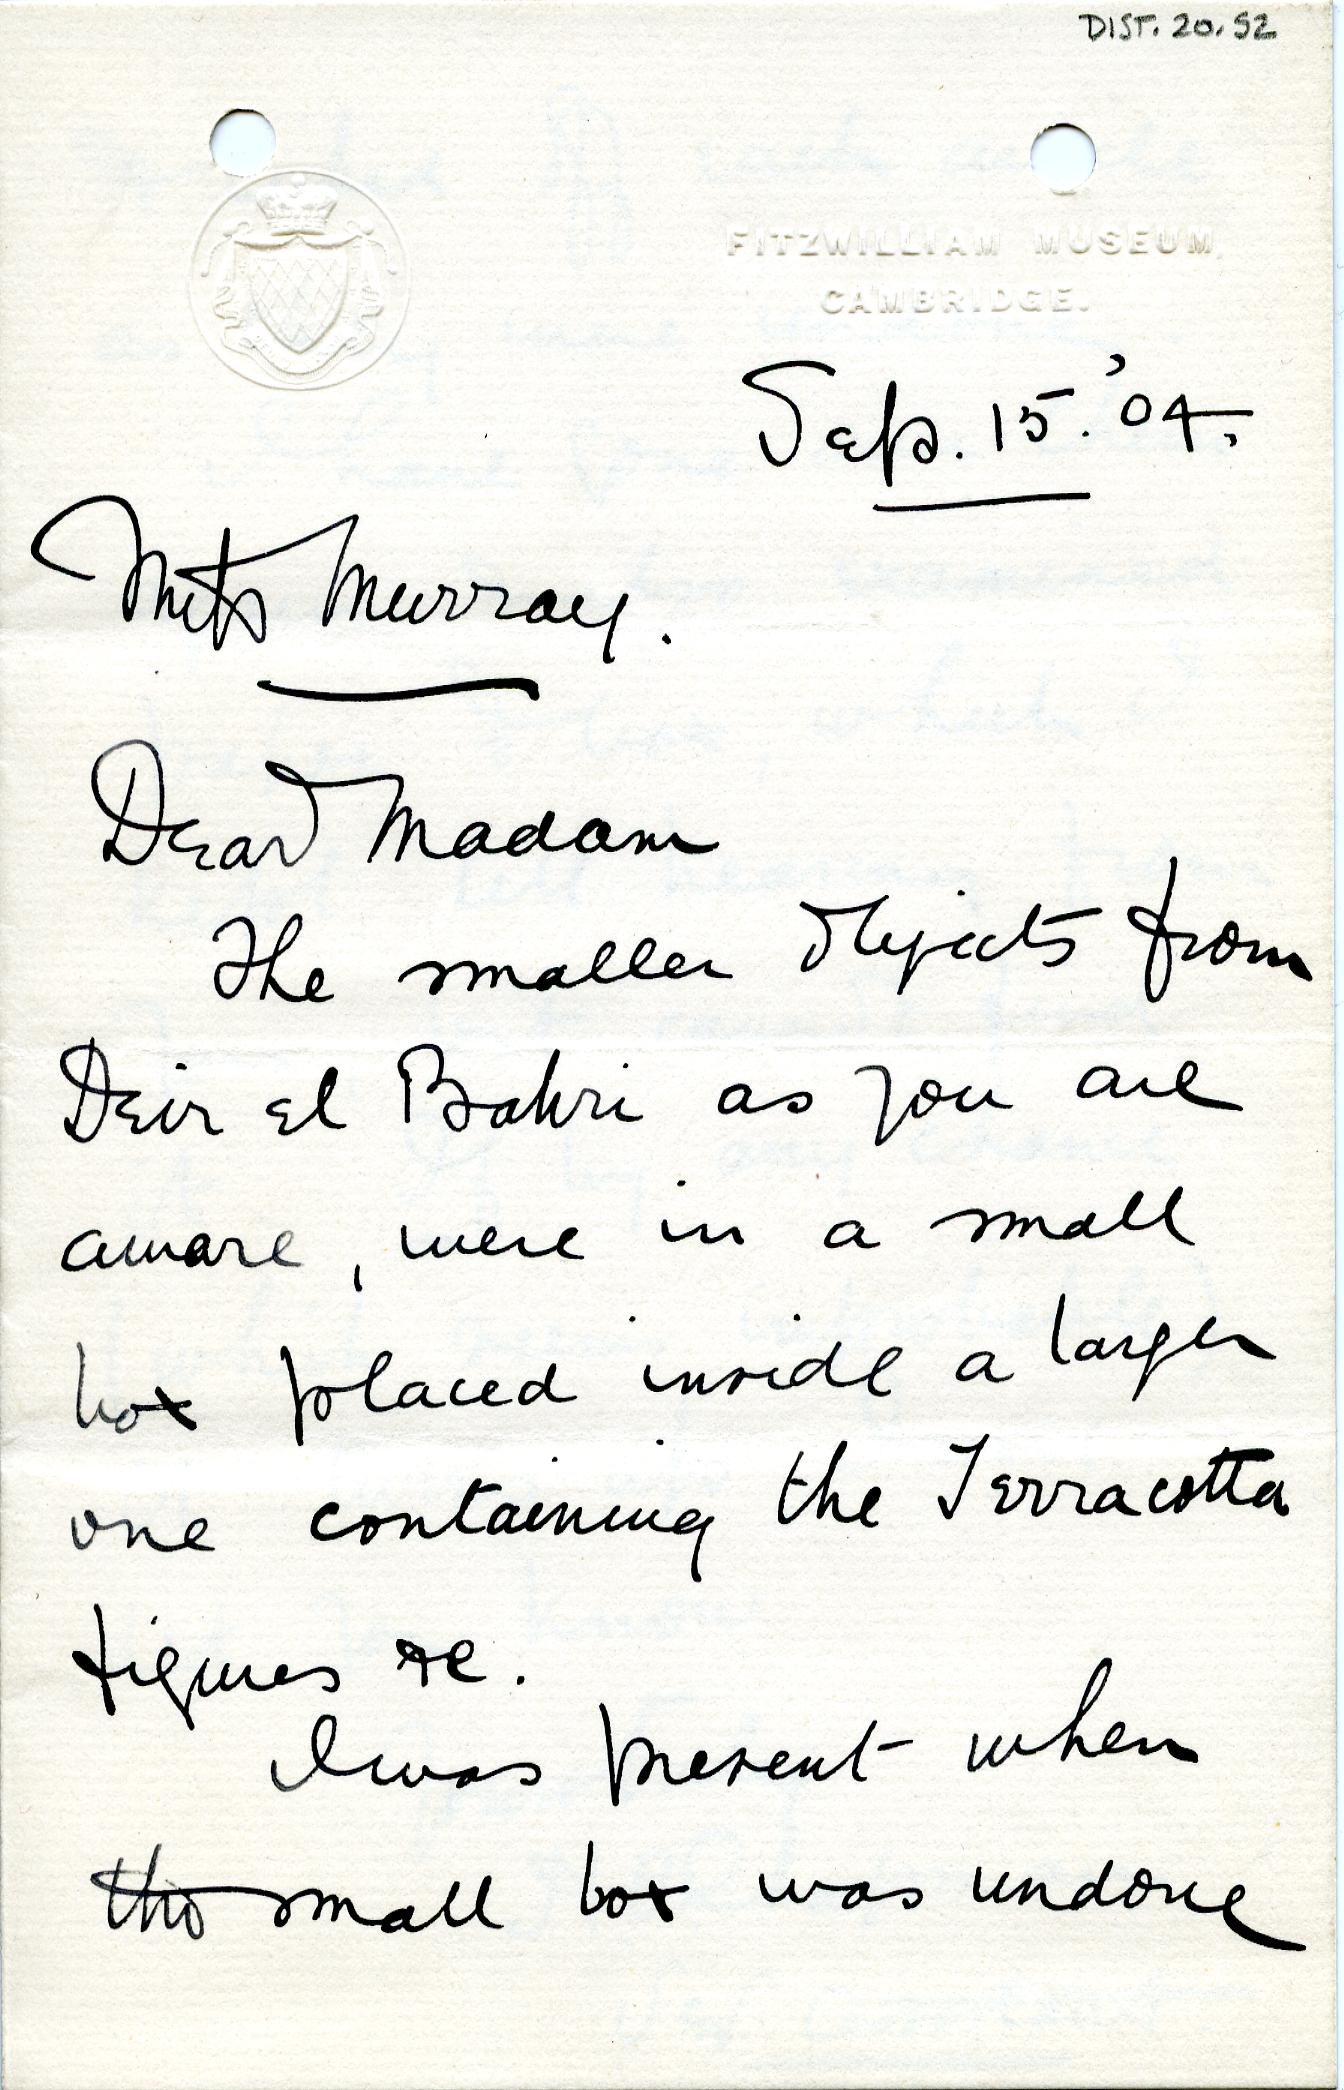 DIST. 20.52
FITZWILLIAM MUSEUM,
CAMBRIDGE.
Sep. 15. '04.
Miss Murray.
Dear Madam
The smaller objects from
Deir el Bahri as you are
aware, were in a small
box placed inside a larger
one containing the Terracotta
figures &c.
I was present when
this small box was undone